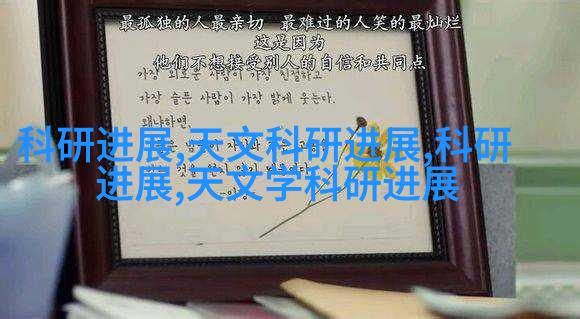 最孤独的人最亲切 最难过的人笑的最灿烂
这是因为
他们不想接受别人的自信和共同点
가장 외로운 사람이 가장 친절하고
가장 슬픈 사람이 가장 밝게 웃는다.
왜냐하면,
科研进展,天文科研进展,科研
进展,天文学科研进展